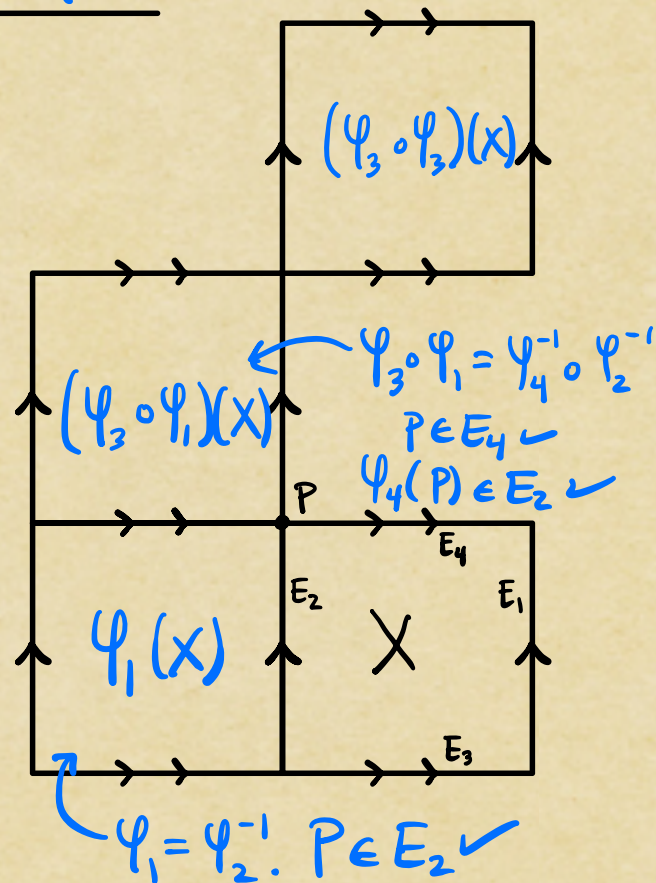 (φ₃∘φ₃)(X)
(φ₃∘φ₁)(X)
φ₃∘φ₁ = φ₄⁻¹∘φ₂⁻¹
P∈E₄ ✓
φ₄(P)∈E₂ ✓
P
E₄
E₂
E₁
φ₁(X)
X
E₃
φ₁ = φ₂⁻¹. P∈E₂ ✓